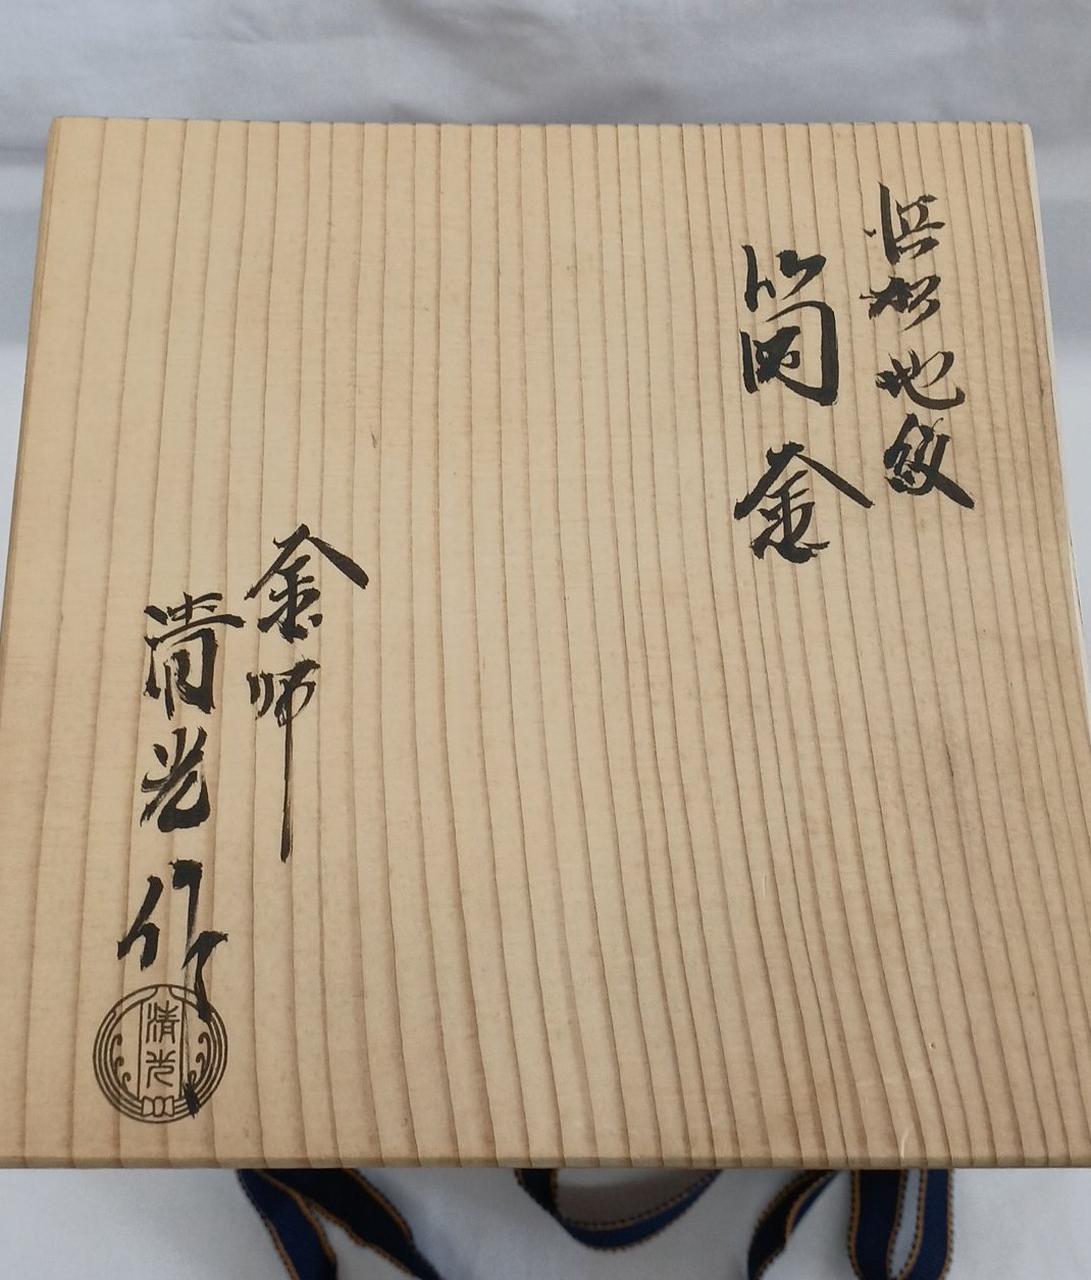 浜松地紋
筒釜
釜師
清光作
清光